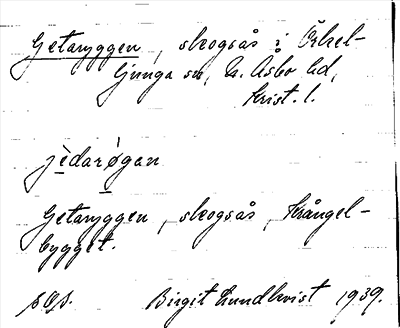 Getaryggen, skogsås i Örkel-
ljunga sn, N. Åsbo hd,
Krist. l.
jèdarøgan
Getaryggen, skogsås, Krångel-
bygget.
Birgit Lundkvist 1939.